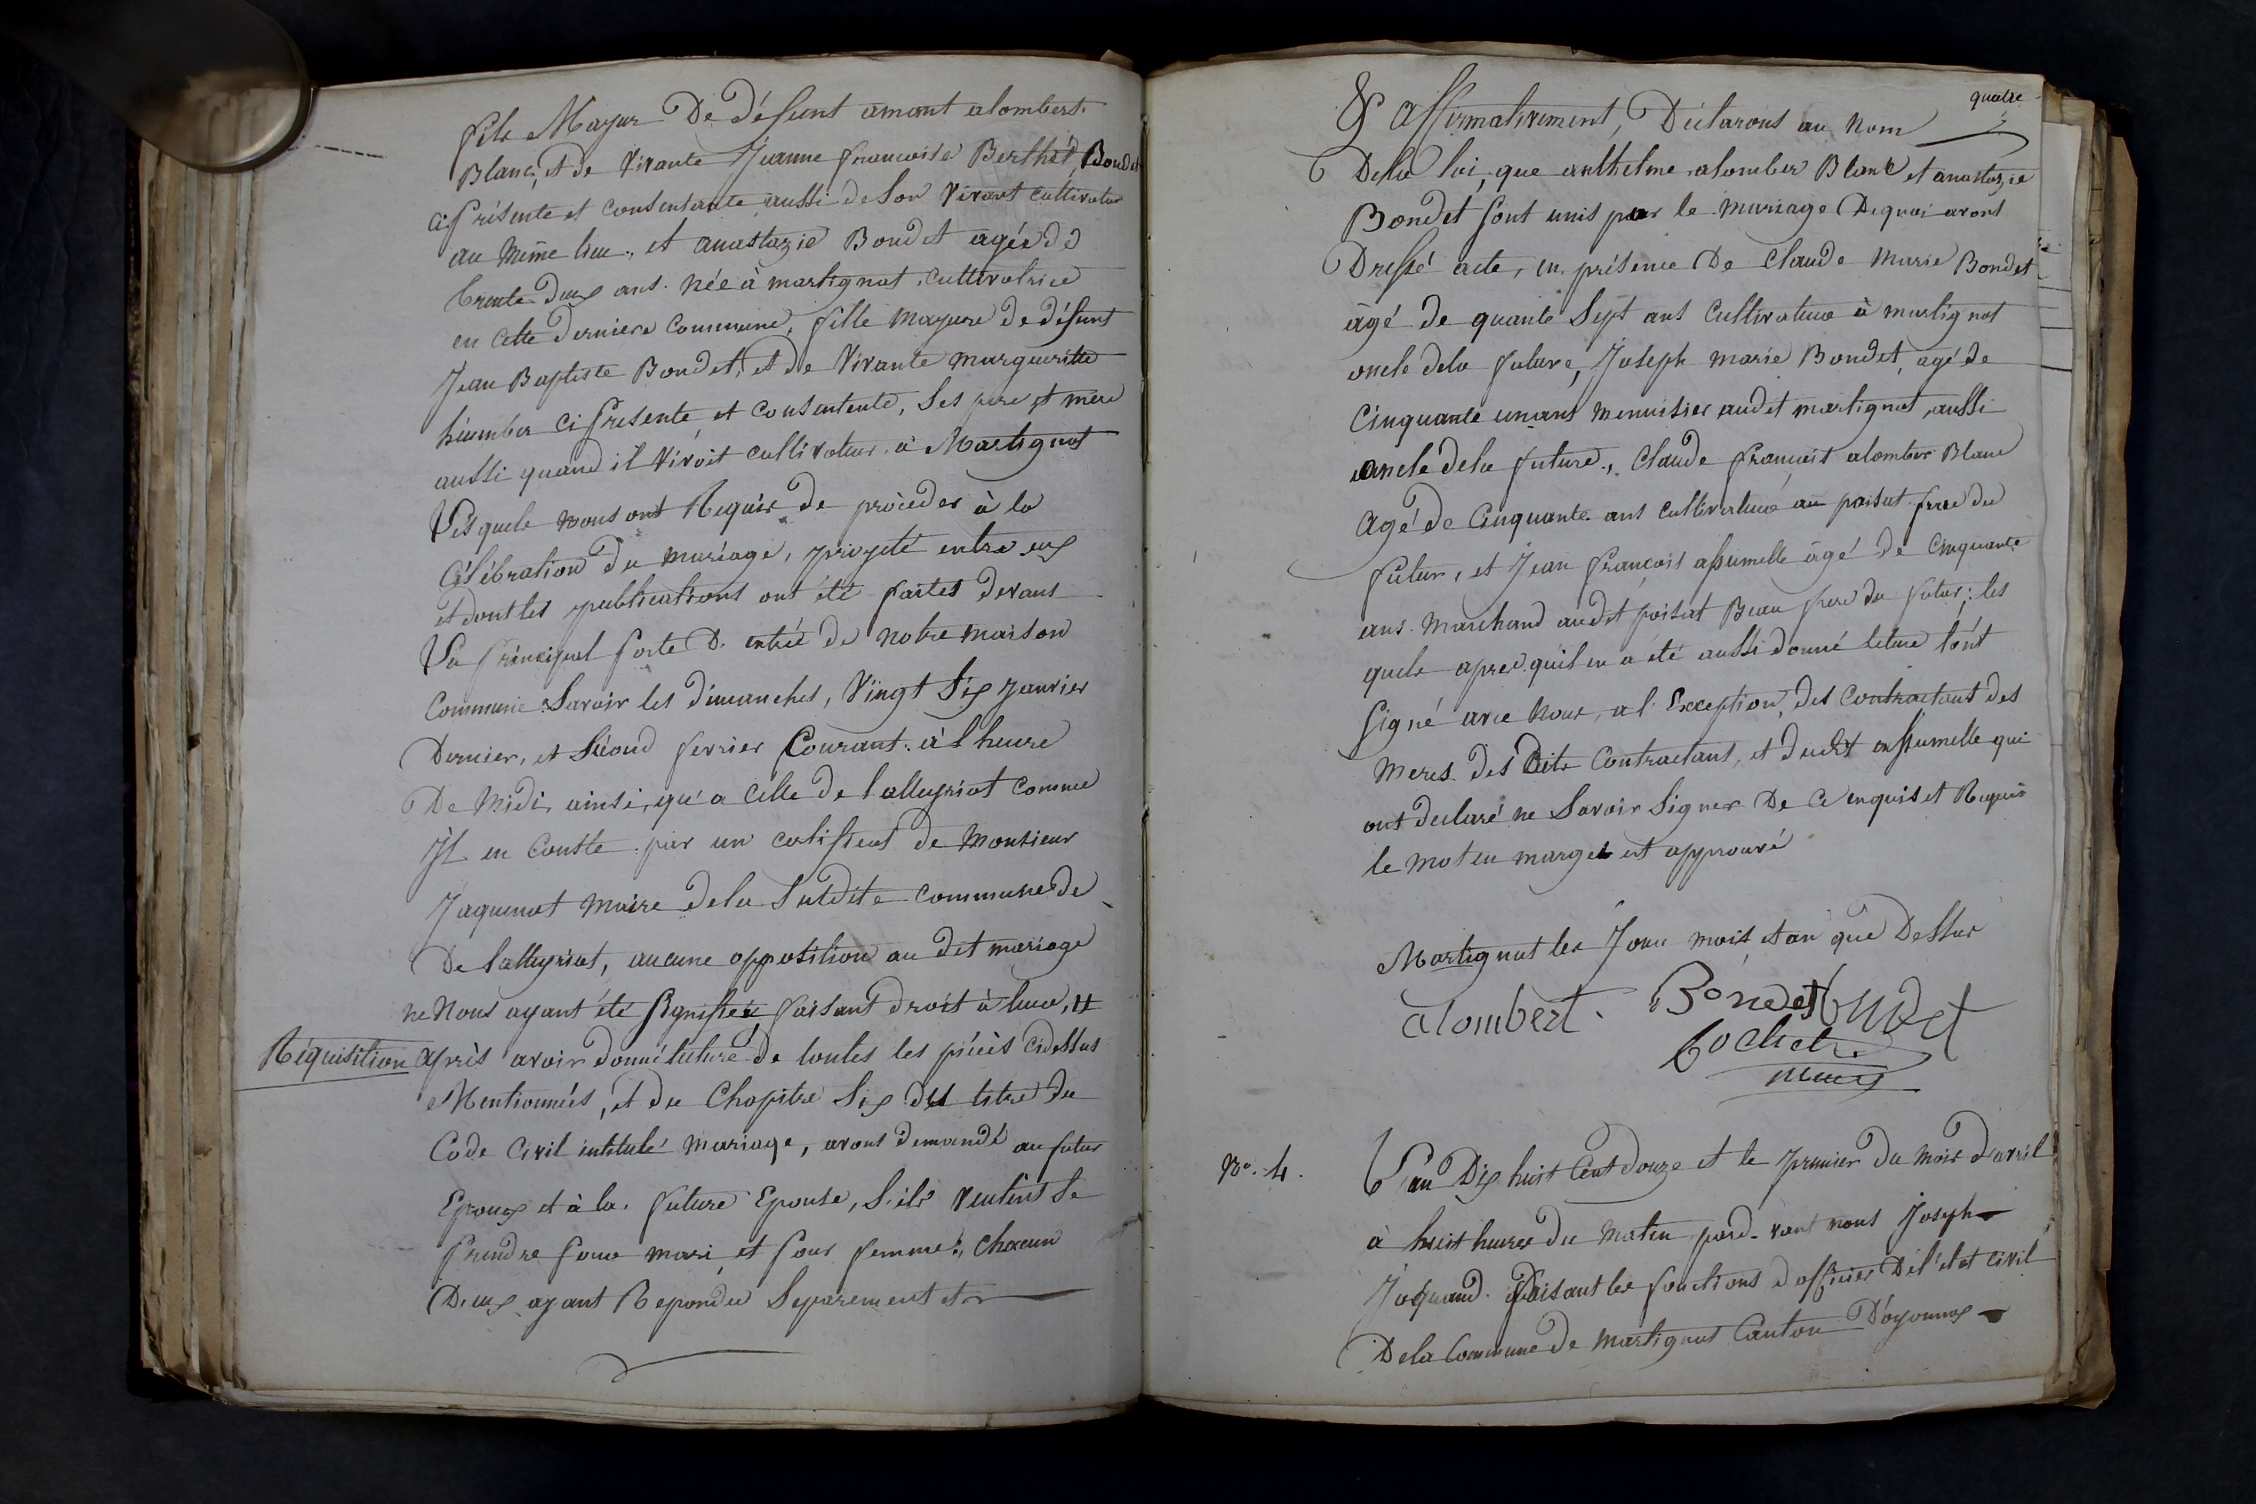 fils Mayur De défunt amant alombert
Blanc, et de vivante Jeanne francoise Berthet, Bondet
ci présente et consentante aussi de son vivant cultivateur
au même lieu, et anastazie Bondet agée de
trente deux ans. née à martignat, cultivatrice
en cette derniere Commune, fille mayure de défunt
Jean Baptiste Bondet, et de vivante margueritte
humber ci presente et consentente, ses pere et mere
aussi quand il vivoit cultivateur à Martignat
Lesquels nous ont Requis de procéder à la
Célébration du mariage, projeté entre eux
et dont les publications ont été faites devant
La principal porte D. entrée de notre maison
Commune Savoir les dimanches, Vingt Six Janvier
Dernier, et Second fevrier Courant. à l heure
De Midi, ainsi, qu'a celle de l alleyriat comme
Jl en Conste par un certificat de Monsieur
Jaquenot maire dela Susdite commune de
De lalleyriat, aucune opposition au dit mariage
ne Nous ayant été signifiée, faisant droit à leur, #
Réquisition après avoir donné lecture de toutes les pièces cidessus
Mentionnées, et du Chapitre Six du titre du
Code Civil intitulé mariage, avons demandé au futur
Epoux et à la. future Epouse, s'ils veulent se
prendre pour mari et pour femme, chacun
D. eux ayant Repondu Séparement et
quatre
& affirmativement, Déclarons au Nom
Dela loi, que anthelme alomber Blanc et anastazie
Bondet sont unis par le mariage Dequoi avons
Dressé acte, en présence De Claude Marie Bondet
âgé de quante Sept ans Cultivateur à martignat
oncle dela future, Joseph marie Bondet, agé de
Cinquante un ans menuisier audit martignat, aussi
oncle dela future, Claude françois alomber Blanc
Agé De Cinquante ans cultivateur au poisat frere du
futur, et Jean François assumelle âgé De Cinquante
ans. Marchand audit poisat Beau frere du futur; les
quels apres quil en a été aussi donné leture l'ont
Signé avec Nous, a l' Exception, des contractant des
Meres des Dits Contractant, et dudit assumelle qui
ont declaré ne Savoir Signer De ce enquis et Requis
le mot en marge est approuvé
Martignat les Jour mois et an que Dessus
alombert. Bondet Bondet
Cochet
maire
No. 4. L'an Dix huit Cent douze et le premier du mois d'avril
à huit heures du matin, pard. vant nous Joseph
Jaquand. faisant les fonctions d officier Del'état civil
Dela Commune De Martignat Canton D'oyonnax